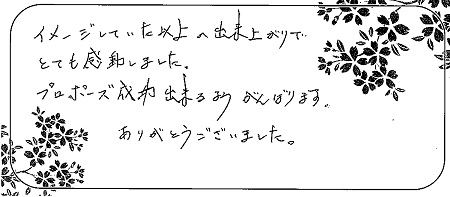 イメージしていた以上の出来上がりで
とても感動しました。
プロポーズ成功出来るよう がんばります。
ありがとうございました。